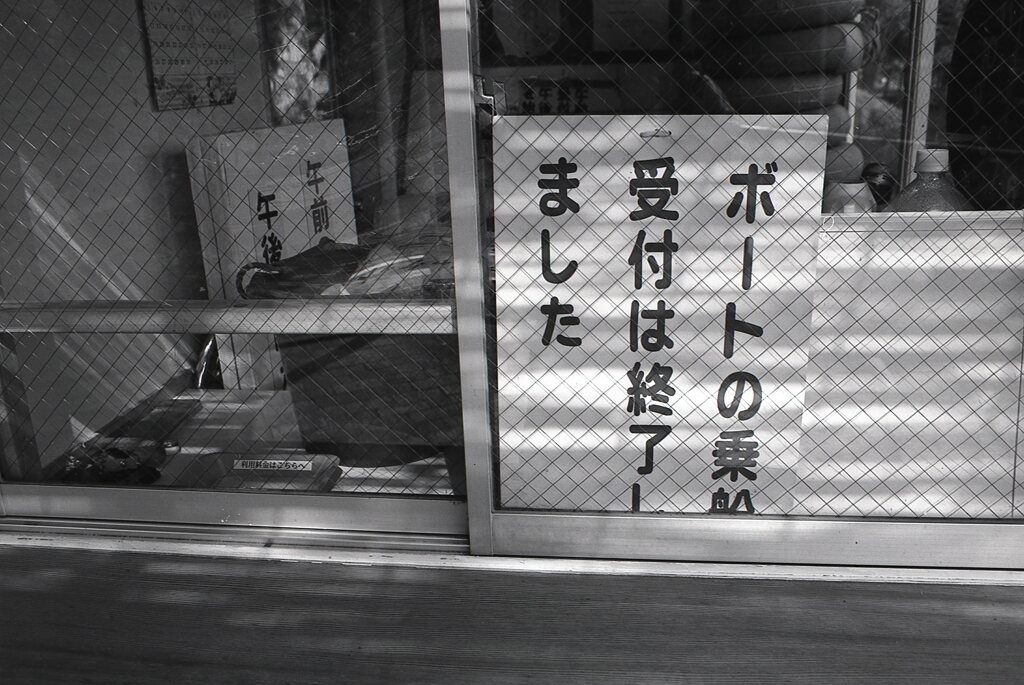 ボートの乗船
受付は終了し
ました
午前
午後
利用料金はこちらへ